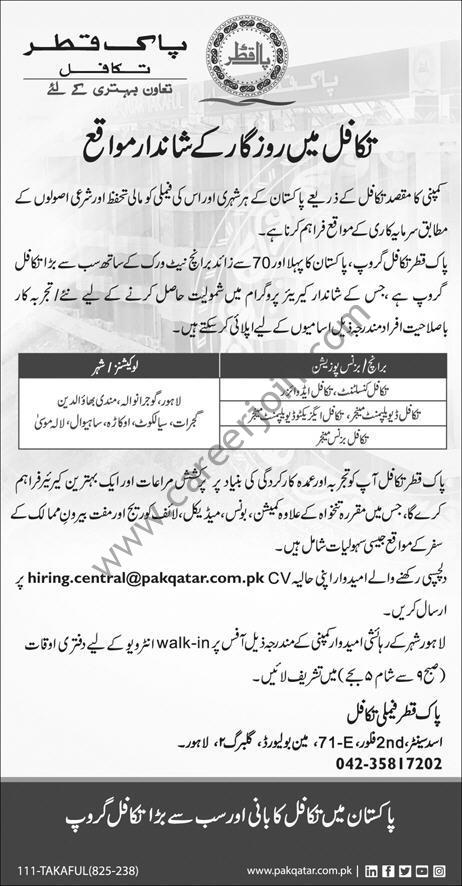 پاک قطر
تکافل
تعاون بہتری کے لئے
پاک قطر
تکافل میں روزگار کے شاندار مواقع
کمپنی کا مقصد تکافل کے ذریعے پاکستان کے ہر شہری اور اس کی فیملی کو مالی تحفظ اور شرعی اصولوں کے
مطابق سرمایہ کاری کے مواقع فراہم کرنا ہے۔
پاک قطر تکافل گروپ، پاکستان کا پہلا اور 70 سے زائد برانچ نیٹ ورک کے ساتھ سب سے بڑا تکافل
گروپ ہے، جس کے شاندار کیریئر پروگرام میں شمولیت حاصل کرنے کے لیے نئے/تجربہ کار
باصلاحیت افراد مندرجہ ذیل اسامیوں کے لیے اپلائی کرسکتے ہیں۔
برانچ/بزنس پوزیشن
لوکیشنز/شہر
تکافل کنسلٹنٹ، تکافل ایڈوائزر
تکافل ڈیولپمنٹ منیجر، تکافل ایگزیکٹو ڈیولپمنٹ منیجر
تکافل بزنس منیجر
لاہور، گوجرانوالہ، منڈی بہاؤالدین
گجرات، سیالکوٹ، اوکاڑہ، ساہیوال، لالہ موسیٰ
پاک قطر تکافل آپ کو تجربہ اور عمدہ کارکردگی کی بنیاد پر پُرکشش مراعات اور ایک بہترین کیریئر فراہم
کرے گا، جس میں مقررہ تنخواہ کے علاوہ کمیشن، بونس، میڈیکل، لائف کوریج اور مفت بیرون ممالک کے
سفر کے مواقع جیسی سہولیات شامل ہیں۔
دلچسپی رکھنے والے امیدوار اپنی حالیہ CV hiring.central@pakqatar.com.pk پر
ارسال کریں۔
لاہور شہر کے رہائشی امیدوار کمپنی کے مندرجہ ذیل آفس پر walk-in انٹرویو کے لیے دفتری اوقات
(صبح ۹ سے شام ۵ بجے) میں تشریف لائیں۔
پاک قطر فیملی تکافل
اسد سینٹر، 2nd فلور، 71-E، مین بولیورڈ، گلبرگ ۲، لاہور۔
042-35817202
پاکستان میں تکافل کا بانی اور سب سے بڑا تکافل گروپ
111-TAKAFUL(825-238)
www.pakqatar.com.pk
www.careerjoin.com